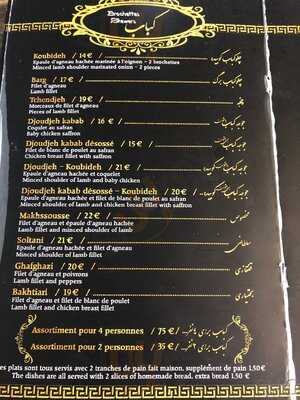 Brochettes
کباب
Koubideh / 14 €
Epaule d'agneau hachée marinée à l'oignon - 2 brochettes
Minced lamb shoulder marinated onion - 2 pieces
Barg / 17 € /
Filet d'agneau
Lamb fillet
Tchendjeh / 19 € /
Morceaux de filet d'agneau
Pieces of lamb fillet
Djoudjeh kabab / 16 € /
Coquelet au safran
Baby chicken saffron
Djoudjeh kabab désossé / 15 € /
Filet de blanc de poulet au safran
Chicken breast fillet with saffron
Djoudjeh - Koubideh / 21 € /
Epaule d'agneau hachée et coquelet
Minced shoulder of lamb and baby chicken
Djoudjeh kabab désossé - Koubideh / 20 € /
Epaule d'agneau hachée et filet de blanc de poulet au safran
Minced shoulder of lamb and chicken breast fillet with saffron
Makhssousse / 22 € /
Filet d'agneau et épaule d'agneau hachée
Lamb fillet and minced shoulder of lamb
مخصوص
Soltani / 21 € /
Epaule d'agneau hachée et filet d'agneau
Minced shoulder of lamb fillet
سلطانی
Ghafghazi / 20 € /
Filet d'agneau et poivrons
Lamb fillet and peppers
قفقازی
Bakhtiari / 19 € /
Filet d'agneau et filet de blanc de poulet
Lamb fillet and chicken breast fillet
بختیاری
Assortiment pour 4 personnes / 75 € / کباب برای ۴ نفر
Assortiment pour 2 personnes / 35 € / کباب برای ۲ نفر
es plats sont tous servis avec 2 tranches de pain fait maison, supplément de pain 1.50€
The dishes are all served with 2 slices of homemade bread, extra bread 1.50 €